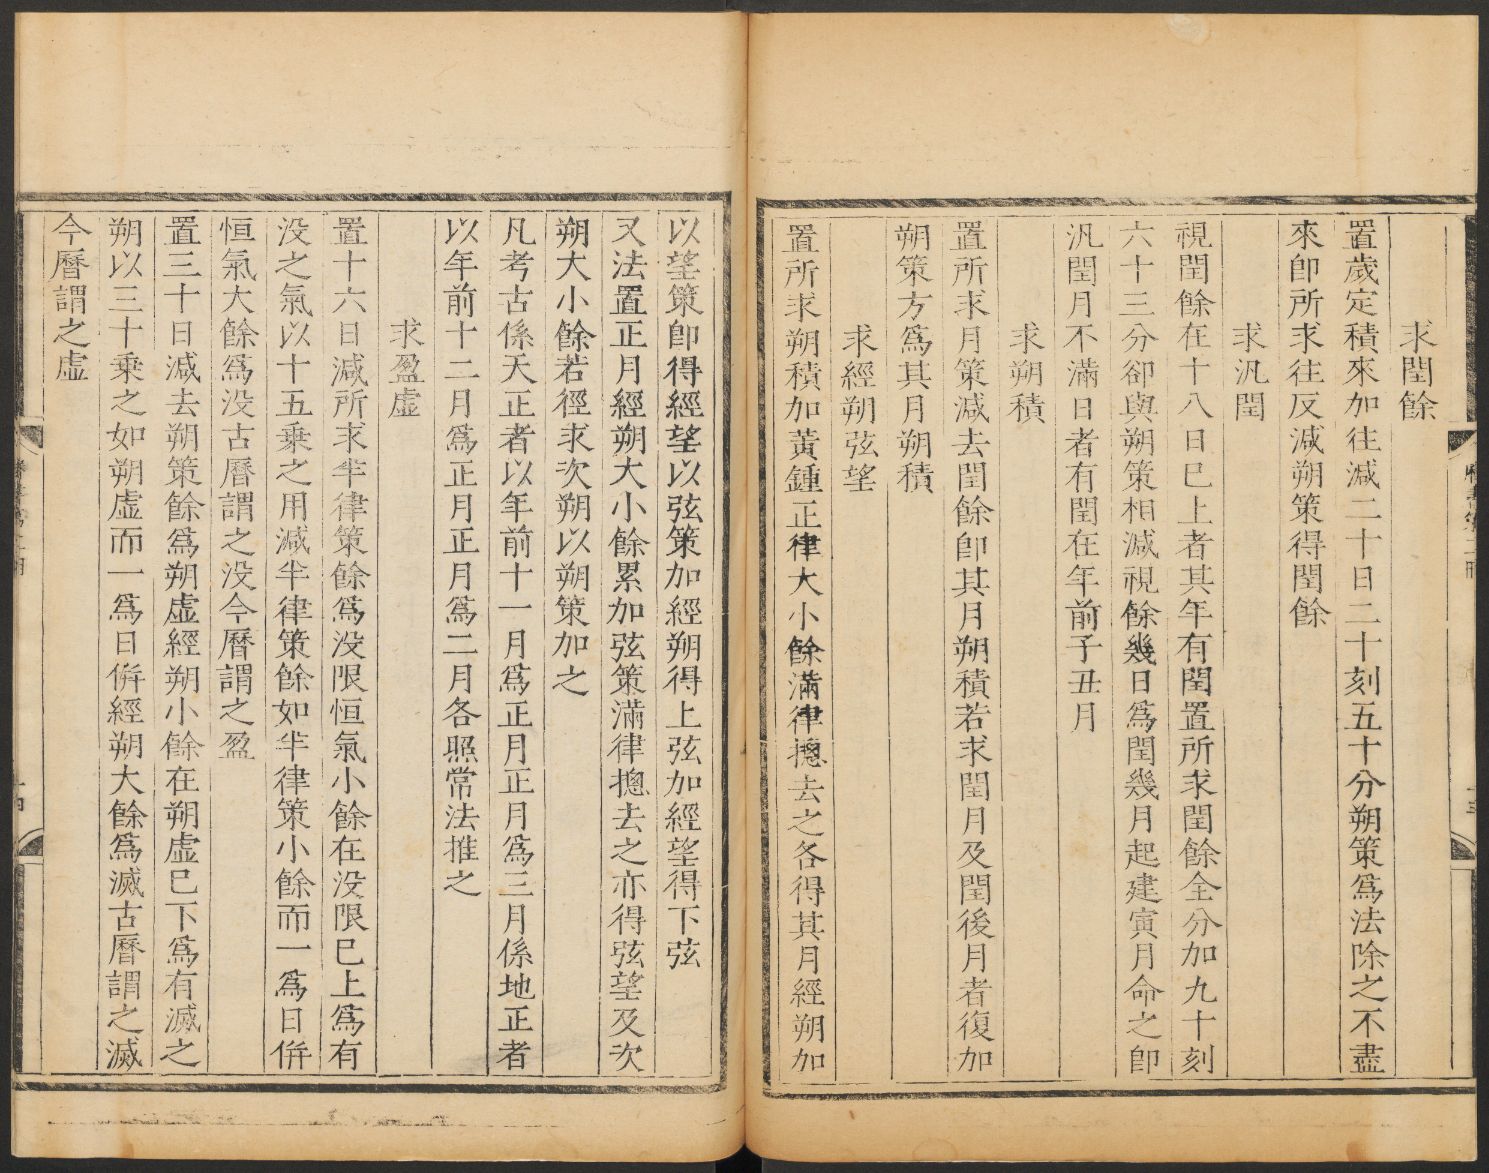 求閏餘
置歲定積來加往減二十日二十刻五十分朔策爲法除之不盡
來卽所求往反減朔策得閏餘
求汎閏
視閏餘在十八日巳上者其年有閏置所求閏餘全分加九十刻
六十三分卻與朔策相減視餘幾日爲閏幾月起建寅月命之卽
汎閏月不滿日者有閏在年前子丑月
求朔積
置所求月策減去閏餘卽其月朔積若求閏月及閏後月者復加
朔策方爲其月朔積
求經朔弦望
置所求朔積加黃鍾正律大小餘滿律摠去之各得其月經朔加
以望策卽得經望以弦策加經朔得上弦加經望得下弦
又法置正月經朔大小餘累加弦策滿律摠去之亦得弦望及次
朔大小餘若徑求次朔以朔策加之
凡考古係天正者以年前十一月爲正月正月爲三月係地正者
以年前十二月爲正月正月爲二月各照常法推之
求盈虛
置十六日減所求半律策餘爲没限恒氣小餘在没限巳上爲有
没之氣以十五乘之用減半律策餘如半律策小餘而一爲日併
恒氣大餘爲没古曆謂之没今曆謂之盈
置三十日減去朔策餘爲朔虛經朔小餘在朔虛巳下爲有滅之
朔以三十乘之如朔虛而一爲日併經朔大餘爲滅古曆謂之滅
今曆謂之虛
十四